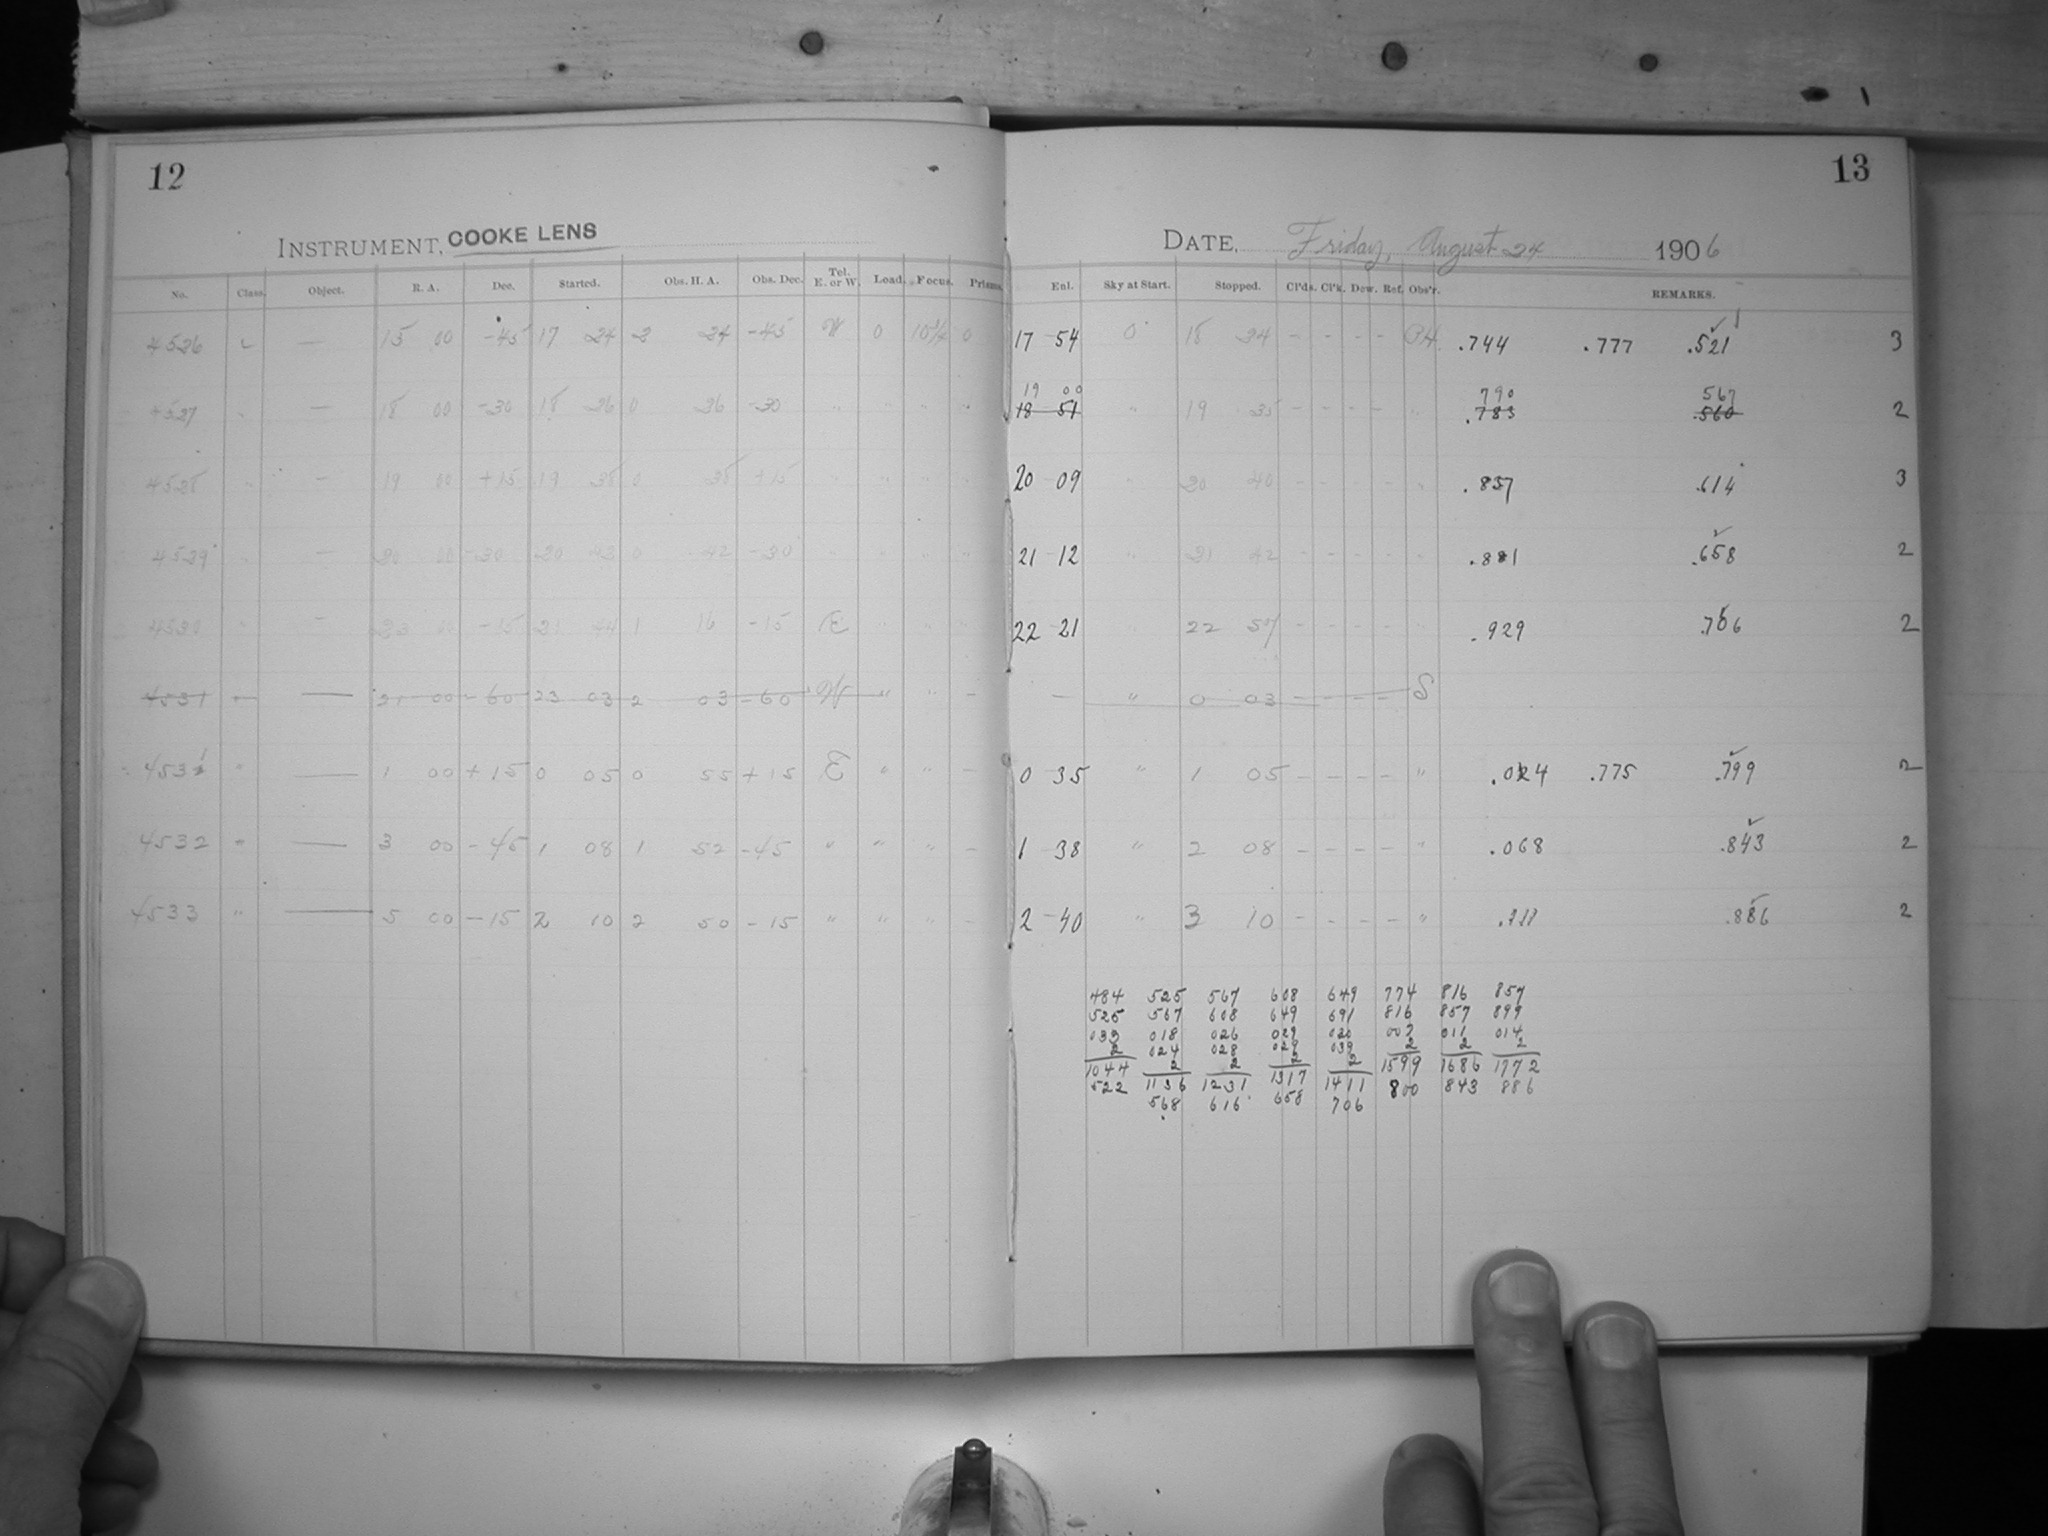 12
INSTRUMENT, COOKE LENS
No. Class. Object. R. A. Dec. Started. Obs. H. A. Obs. Dec. Tel. E. or W. Load. Focus. Prisms.
4526 — 15 00 -45 17 24 2 24 -45 W 0 0
4527 " — 18 00 -30 18 26 0 26 -30 " " " "
4528 " — 19 00 +15 19 38 0 38 +15 " " " "
4529 " — 20 00 -30 20 42 0 42 -30 " " " "
4530 " — 23 00 -15 21 44 1 16 -15 E " " "
4531 — 21 00 -60 23 03 2 03 -60 W " " -
4531 " — 1 00 +15 0 05 0 55 +15 E " " -
4532 " — 3 00 -45 1 08 1 52 -45 " " " -
4533 " — 5 00 -15 2 10 2 50 -15 " " " -
13
DATE, Friday, August 24 1906
Enl. Sky at Start. Stopped. Cl'ds. Cl'k. Dew. Ref. Obs'r. REMARKS.
17 54 0 18 24 - - - - .744 .777 .521 3
19 00 790 567
18 51 " 19 35 - - - - " .783 .560 2
20 09 " 20 40 - - - - " .837 .614 3
21 12 " 21 42 - - - - " .881 .658 2
22 21 " 22 57 - - - - " .929 .706 2
— " 0 03 - - - - S
0 35 " 1 05 - - - - " .024 .775 .799 2
1 38 " 2 08 - - - - " .068 .843 2
2 40 " 3 10 - - - - " .111 .886 2
484 525 567 608 649 774 816 857
525 567 608 649 691 816 857 899
033 018 026 029 030 007 011 014
2 024 028 029 039 2 2 2
1044 2 2 2 2 1599 1686 1772
522 1136 1231 1317 1411 800 843 886
568 616 658 706